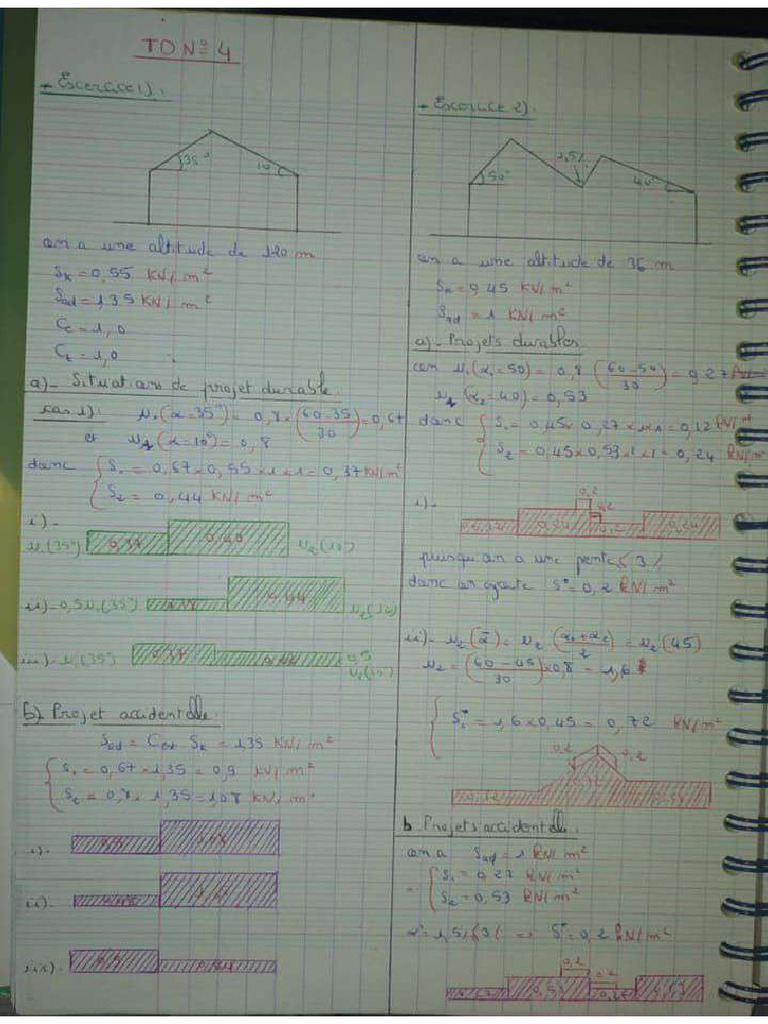 TD N° 4
+ Exercice 1) :
35°
10°
on a une altitude de 120 m
Sk = 0,55 KN/m²
Sad = 1,35 KN/m²
Ce = 1,0
Ct = 1,0
a)- Situations de projet durable.
cas 1) : μ1(α=35°) = 0,8 × (60-35/30) = 0,67
et μ1(α=10°) = 0,8
donc { S1 = 0,67 × 0,55 × 1 × 1 = 0,37 KN/m²
S2 = 0,44 KN/m²
i)-
μ1(35°) 0,37
ii)- 0,5μ1(35°)
iii)- μ1(35°) 0,37 0,5
b) Projet accidentelle.
Sad = Cesl Sk = 1,35 KN/m²
{ S1 = 0,67 × 1,35 = 0,9 KN/m²
S2 = 0,8 × 1,35 = 1,08 KN/m²
i)-
ii)-
iii)-
+ Exercice 2) :
50°
1,5%
40°
on a une altitude de 36 m
Sk = 0,45 KN/m²
Sad = 1 KN/m²
a)- Projets durables
on μ1(α1=50) = 0,8 (60-50/30) = 0,27
μ1(α2=40) = 0,53
donc { S1 = 0,45 × 0,27 × 1 × 1 = 0,12 KN/m²
S2 = 0,45 × 0,53 × 1 × 1 = 0,24 KN/m²
i)-
0,2
0,2
0,24
0,24
puisqu'on a une pente ≤ 3%
donc on ajoute S* = 0,2 KN/m²
ii)- μ2(ᾱ) = μ2 (α1+α2/2) = μ2(45)
μ2 = (60-45/30) × 0,8 = 1,6
{ S1* = 1,6 × 0,45 = 0,72 KN/m²
0,2
0,2
0,12
b Projets accidentelle.
on a Sad = 1 KN/m²
{ S1 = 0,27 KN/m²
S2 = 0,53 KN/m²
α = 1,5% ≤ 3% => S* = 0,2 KN/m²
0,2
0,2
0,53
0,53